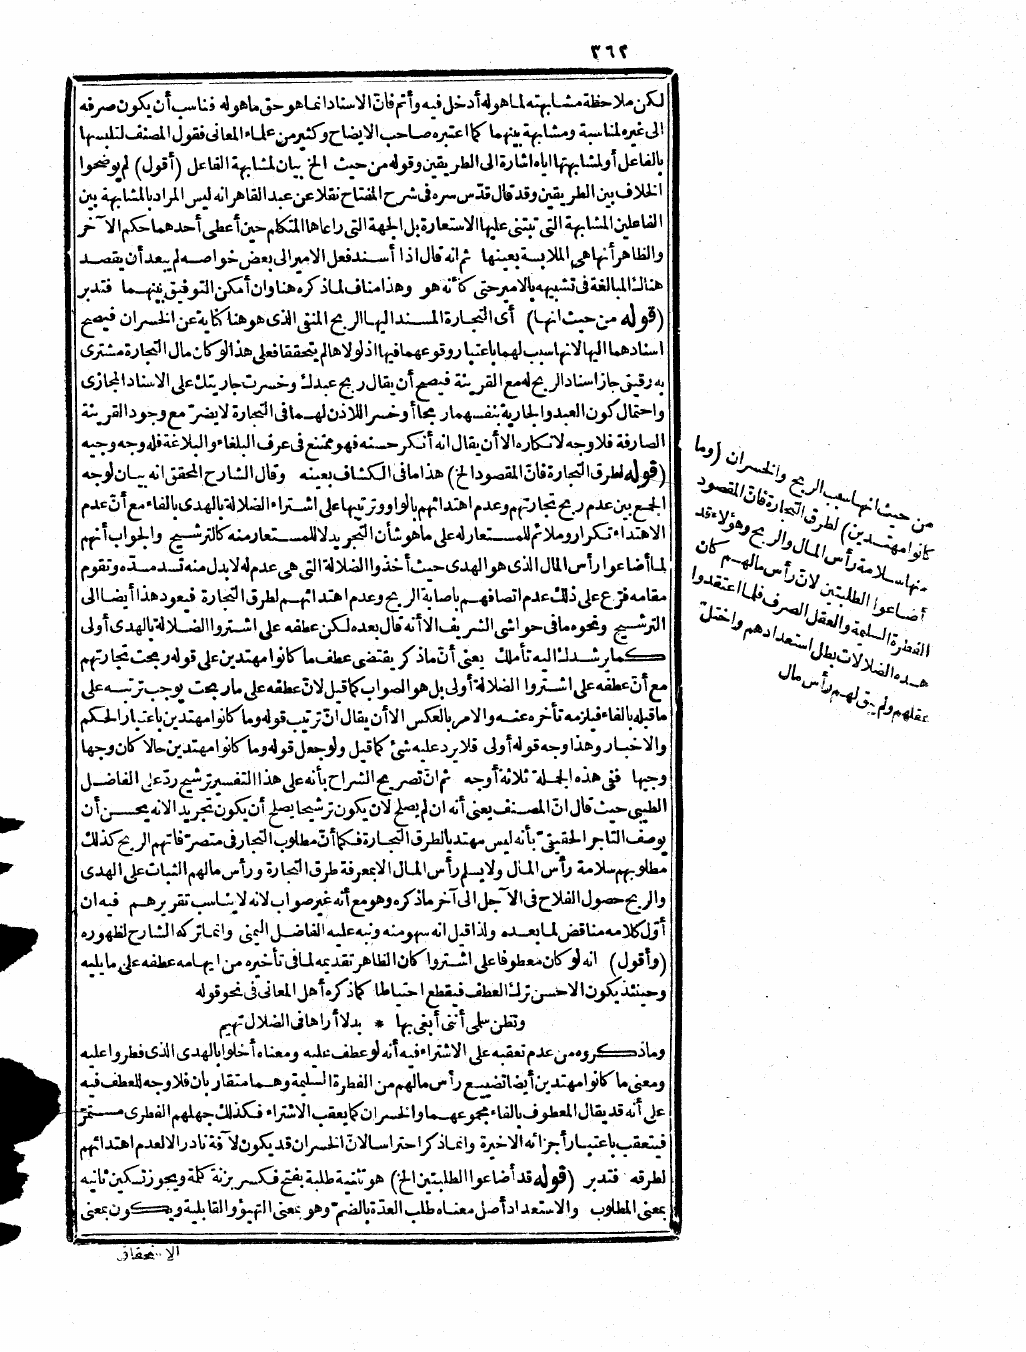 ٣٦٢
لكن ملاحظة مشابهته لما هوله أدخل فيه وأتم فانّ الاسناد انما هو حق ما هوله فناسب أن يكون صرفه
الى غيره لمناسبة ومشابهة بينهما كما اعتبره صاحب الايضاح وكثير من علماء المعانى فقول المصنف لتلبسها
بالفاعل أو لمشابهتها اياه اشارة الى الطريقين وقوله من حيث الخ بيان لمشابهة الفاعل (أقول) لم يوضحوا
الخلاف بين الطريقين وقد قال قدّس سره فى شرح المفتاح نقلا عن عبد القاهر انه ليس المراد بالمشابهة بين
الفاعلين المشابهة التى تبتنى عليها الاستعارة بل الجهة التى راعاها المتكلم حين أعطى أحدهما حكم الآخر
والظاهر أنها هى الملابسة بعينها ثم انه قال اذا أسند فعل الامير الى بعض خواصه لم يبعد أن يقصد
هناك المبالغة فى تشبيهه بالامير حتى كأنه هو وهذا مناف لما ذكره هنا وان أمكن التوفيق بينهما فتدبر
(قوله من حيث انها) أى التجارة المسند اليها الربح المنفى الذى هو هنا كناية عن الخسران فيصح
اسنادهما اليها لانها سبب لهما باعتبار وقوعهما فيها اذ لولاها لم يتحققا فعلى هذا لو كان مال التجارة مشترى
به رقيق جاز اسناد الربح له مع القرينة فيصح أن يقال ربح عبدك وخسرت جاريتك على الاسناد المجازى
واحتمال كون العبد والجارية بنفسهما ربحا أو خسرا للاذن لهما فى التجارة لا يضرّ مع وجود القرينة
الصارفة فلا وجه لانكاره الا أن يقال انه أنكر حسنه فهو ممتنع فى عرف البلغاء والبلاغة فله وجه وجيه
(قوله لطرق التجارة فانّ المقصود الخ) هذا ما فى الكشاف بعينه وقال الشارح المحقق انه بيان لوجه
الجمع بين عدم ربح تجارتهم وعدم اهتدائهم بالواو وترتيبها على اشتراء الضلالة بالهدى بالفاء مع أنّ عدم
الاهتداء تكرار وملائم للمستعار له على ما هو شأن التجريد لا للمستعار منه كالترشيح والجواب أنهم
لما أضاعوا رأس المال الذى هو الهدى حيث أخذوا الضلالة التى هى عدم له لا بدل منه تسدّ مسدّه وتقوم
مقامه فرّع على ذلك عدم اتصافهم باصابة الربح وعدم اهتدائهم لطرق التجارة فيعود هذا أيضا الى
الترشيح ونحوه ما فى حواشى الشريف الا أنه قال بعده لكن عطفه على اشتروا الضلالة بالهدى أولى
كما يرشدك اليه تأملك يعنى أنّ ما ذكر يقتضى عطف ما كانوا مهتدين على قوله ربحت تجارتهم
مع أنّ عطفه على اشتروا الضلالة أولى بل هو الصواب كما قيل لانّ عطفه على ما ربحت يوجب ترتبه على
ما قبله بالفاء فيلزمه تأخره عنه والامر بالعكس الا أن يقال انّ ترتيب قوله وما كانوا مهتدين باعتبار الحكم
والاخبار وهذا وجه قوله أولى فلا يرد عليه شئ كما قيل ولو جعل قوله وما كانوا مهتدين حالا كان وجها
وجيها ففى هذه الجملة ثلاثة أوجه ثم انّ تصريح الشراح بأنه على هذا التفسير ترشيح ردّ على الفاضل
الطيبى حيث قال انّ المصنف يعنى أنه ان لم يصلح لان يكون ترشيحا يصلح أن يكون تجريدا لانه يحسن أن
يوصف التاجر الحقيقىّ بأنه ليس مهتد يالطرق التجارة فكما أنّ مطلوب التجار فى متصرّفاتهم الربح كذلك
مطلوبهم سلامة رأس المال ولا يسلم رأس المال الا بمعرفة طرق التجارة ورأس مالهم الثبات على الهدى
والربح حصول الفلاح فى الآجل الى آخر ما ذكره وهو مع أنه غير صواب لانه لا يناسب تقريرهم فيه ان
أوّل كلامه مناقض لما بعده ولذا قيل انه سهو منه ونبه عليه الفاضل اليمنى وانما تركه الشارح لظهوره
(وأقول) انه لو كان معطوفا على اشتروا كان الظاهر تقديمه لما فى تأخيره من ايهامه عطفه على ما يليه
وحينئذ يكون الاحسن ترك العطف فيقطع احتياطا كما ذكره أهل المعانى فى نحو قوله
وتظن سلمى أننى أبغى بها * بدلا أراها فى الضلال تهيم
وما ذكروه من عدم تعقبه على الاشتراء فيه أنه لو عطف عليه ومعناه أخلوا بالهدى الذى فطروا عليه
ومعنى ما كانوا مهتدين أيضا تضييع رأس مالهم من الفطرة السليمة وهما متقاربان فلا وجه للعطف فيه
على أنه قد يقال المعطوف بالفاء مجموعهما والخسران كما يعقب الاشتراء فكذلك جهلهم الفطرى مستمرّ
فيتعقب باعتبار أجزائه الاخيرة وانما ذكر احتراسا لانّ الخسران قد يكون لآفة نادر الا لعدم اهتدائهم
لطرقه فتدبر (قوله قد أضاعوا الطلبتين الخ) هو تثنية طلبة بفتح فكسر بزنة كلمة ويجوز تسكين ثانيه
بمعنى المطلوب والاستعداد أصل معناه طلب العدّة بالضمّ وهو بمعنى التهيؤ والقابلية ويكون بمعنى
الاستحقاق
من حيث انها سبب الربح والخسران (وما
كانوا مهتدين) لطرق التجارة فانّ المقصود
منها سلامة رأس المال والربح وهؤلاء قد
أضاعوا الطلبتين لانّ رأس مالهم كان
الفطرة السليمة والعقل الصرف فلما اعتقدوا
هذه الضلالات بطل استعدادهم واختلّ
عقلهم ولم يبق لهم رأس مال